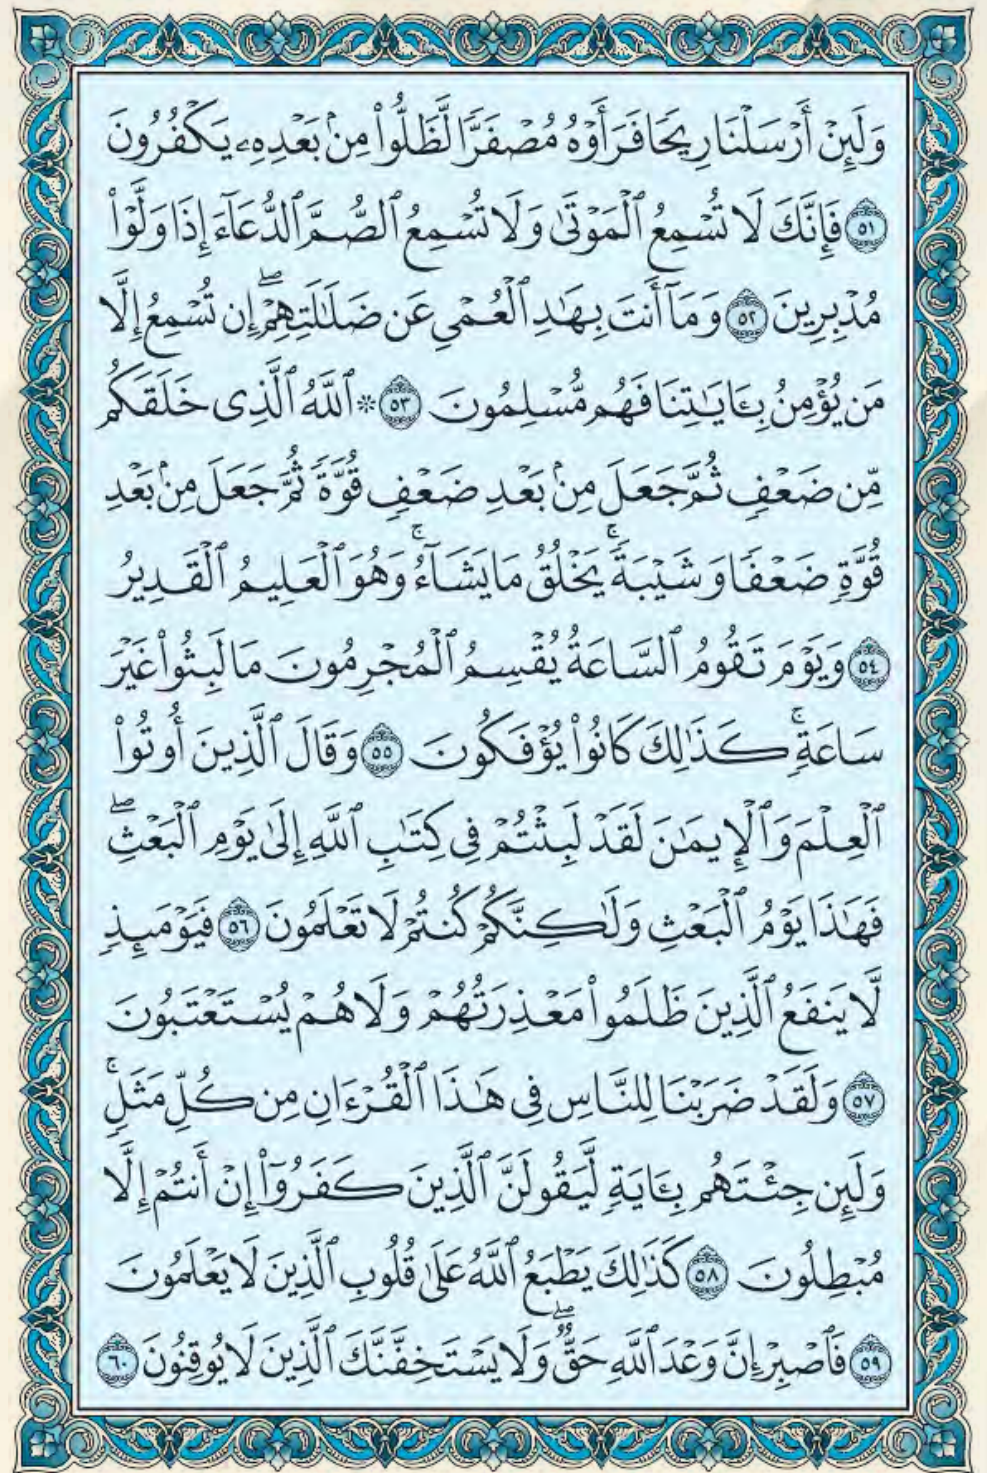 وَلَئِنْ أَرْسَلْنَا رِيحًا فَرَأَوْهُ مُصْفَرًّا لَّظَلُّوا۟ مِنۢ بَعْدِهِۦ يَكْفُرُونَ
٥١ فَإِنَّكَ لَا تُسْمِعُ ٱلْمَوْتَىٰ وَلَا تُسْمِعُ ٱلصُّمَّ ٱلدُّعَآءَ إِذَا وَلَّوْا۟
مُدْبِرِينَ ٥٢ وَمَآ أَنتَ بِهَٰدِ ٱلْعُمْىِ عَن ضَلَٰلَتِهِمْۖ إِن تُسْمِعُ إِلَّا
مَن يُؤْمِنُ بِـَٔايَٰتِنَا فَهُم مُّسْلِمُونَ ٥٣ * ٱللَّهُ ٱلَّذِى خَلَقَكُم
مِّن ضَعْفٍ ثُمَّ جَعَلَ مِنۢ بَعْدِ ضَعْفٍ قُوَّةً ثُمَّ جَعَلَ مِنۢ بَعْدِ
قُوَّةٍ ضَعْفًا وَشَيْبَةًۚ يَخْلُقُ مَا يَشَآءُۚ وَهُوَ ٱلْعَلِيمُ ٱلْقَدِيرُ
٥٤ وَيَوْمَ تَقُومُ ٱلسَّاعَةُ يُقْسِمُ ٱلْمُجْرِمُونَ مَا لَبِثُوا۟ غَيْرَ
سَاعَةٍۚ كَذَٰلِكَ كَانُوا۟ يُؤْفَكُونَ ٥٥ وَقَالَ ٱلَّذِينَ أُوتُوا۟
ٱلْعِلْمَ وَٱلْإِيمَٰنَ لَقَدْ لَبِثْتُمْ فِى كِتَٰبِ ٱللَّهِ إِلَىٰ يَوْمِ ٱلْبَعْثِۖ
فَهَٰذَا يَوْمُ ٱلْبَعْثِ وَلَٰكِنَّكُمْ كُنتُمْ لَا تَعْلَمُونَ ٥٦ فَيَوْمَئِذٍ
لَّا يَنفَعُ ٱلَّذِينَ ظَلَمُوا۟ مَعْذِرَتُهُمْ وَلَا هُمْ يُسْتَعْتَبُونَ
٥٧ وَلَقَدْ ضَرَبْنَا لِلنَّاسِ فِى هَٰذَا ٱلْقُرْءَانِ مِن كُلِّ مَثَلٍۚ
وَلَئِن جِئْتَهُم بِـَٔايَةٍ لَّيَقُولَنَّ ٱلَّذِينَ كَفَرُوٓا۟ إِنْ أَنتُمْ إِلَّا
مُبْطِلُونَ ٥٨ كَذَٰلِكَ يَطْبَعُ ٱللَّهُ عَلَىٰ قُلُوبِ ٱلَّذِينَ لَا يَعْلَمُونَ
٥٩ فَٱصْبِرْ إِنَّ وَعْدَ ٱللَّهِ حَقٌّۖ وَلَا يَسْتَخِفَّنَّكَ ٱلَّذِينَ لَا يُوقِنُونَ ٦٠